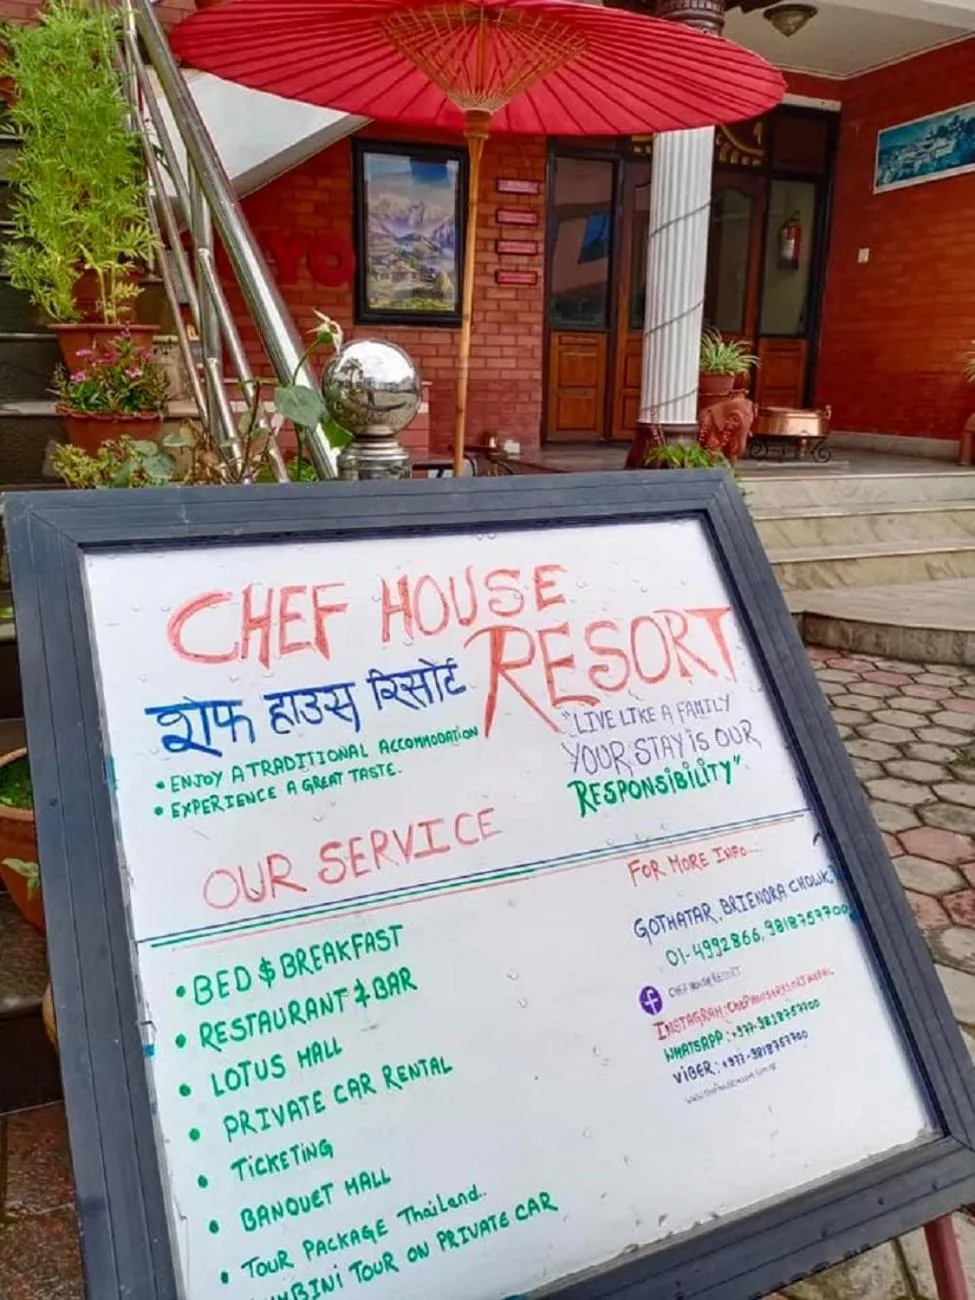 CHEF HOUSE
RESORT
शेफ हाउस रिसोर्ट
• ENJOY A TRADITIONAL ACCOMMODATION
• EXPERIENCE A GREAT TASTE.
"LIVE LIKE A FAMILY
YOUR STAY iS OUR
RESPONSiBiLiTY"
OUR SERVICE
• BED $ BREAKFAST
• RESTAURANT & BAR
• LOTUS HALL
• PRIVATE CAR RENTAL
• TiCKETING
• BANQUET HALL
• TOUR PACKAGE Thailand..
TOUR ON PRIVATE CAR
FOR MORE INFO....
GOTHATAR, BRIENDRA CHOWK,
01-4992866, 9818757700
f CHEF HOUSE RESORT
INSTAGRAM:
WHATSAPP: +977-9818757700
ViBER: +977-9818757700
YO